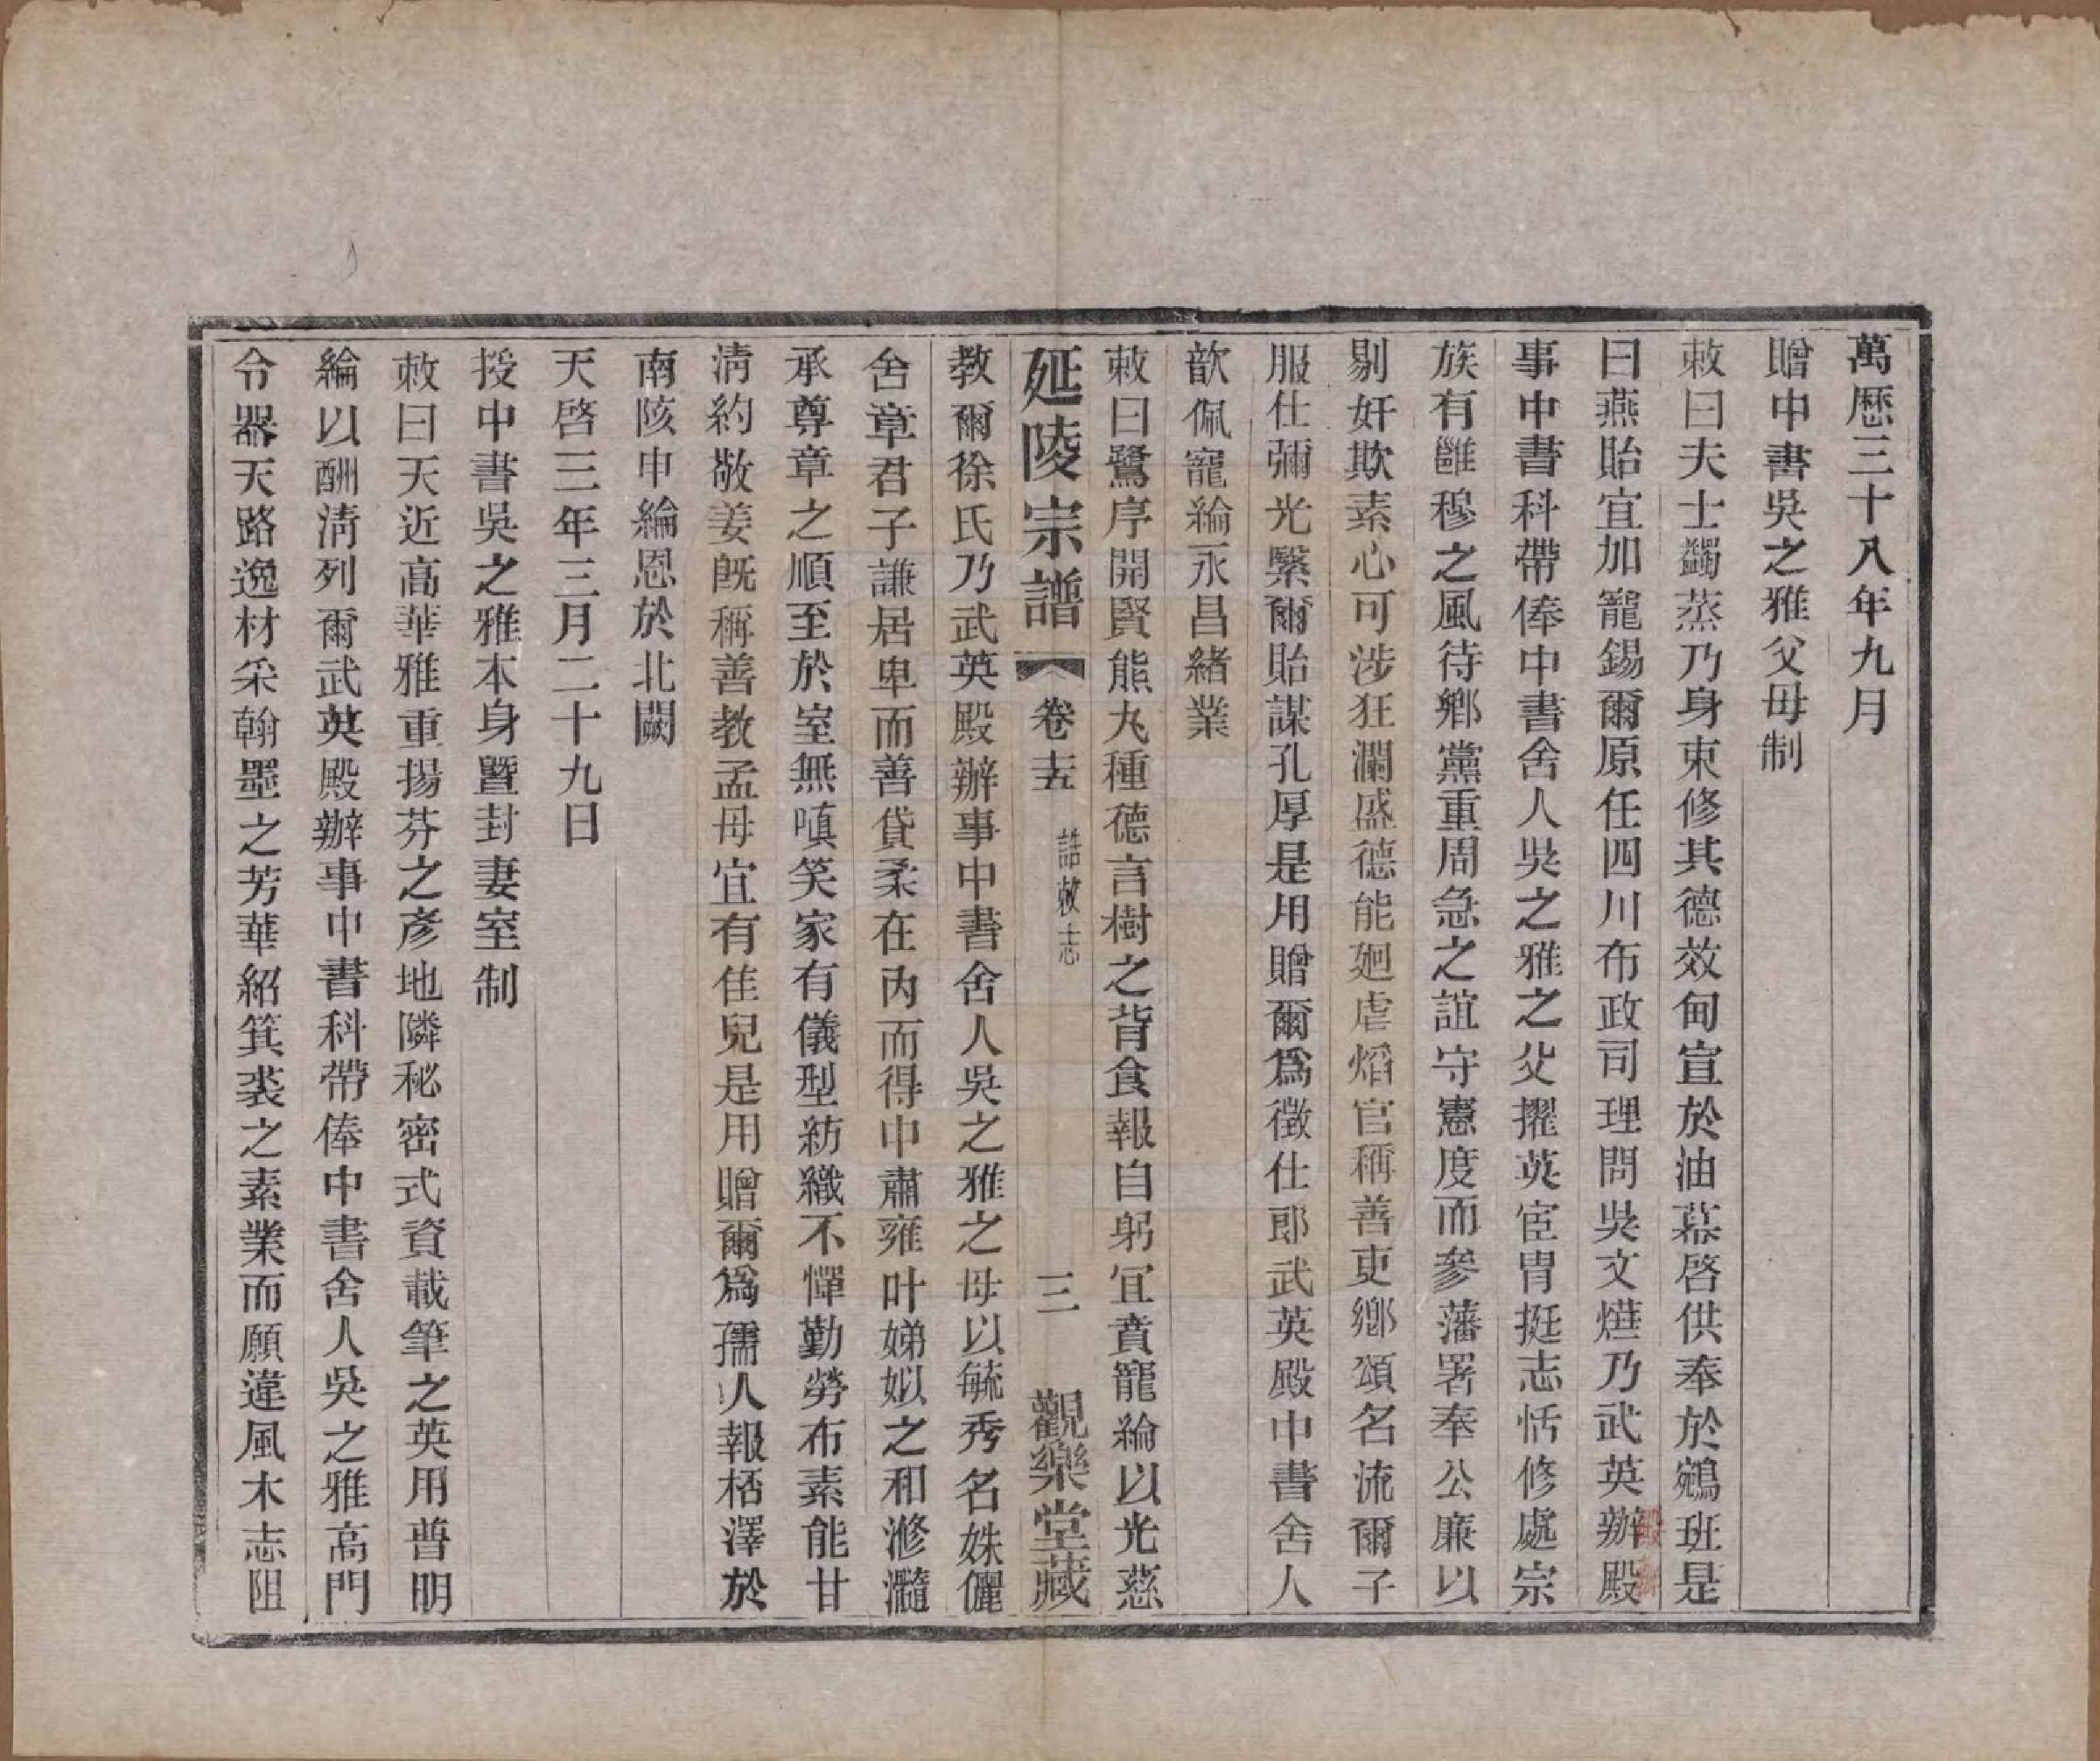 萬歷三十八年九月
贈中書吳之雅父母制
敕曰夫士蠲蒸乃身束修其德效甸宣於油幕啓供奉於鵷班是
曰燕貽宜加寵錫爾原任四川布政司理問吳文爀乃武英辦殿
事中書科帶俸中書舍人吳之雅之父擢英宦胄挺志恬修處宗
族有雝穆之風待鄉黨重周急之誼守憲度而參藩署奉公廉以
剔奸欺素心可涉狂瀾盛德能廻虐熖官稱善吏鄉頌名流爾子
服仕彌光繄爾貽謀孔厚是用贈爾爲徵仕郎武英殿中書舍人
歆佩寵綸永昌緒業
敕曰鷺序開賢熊丸種德言樹之背食報自躬宜賁寵綸以光慈
延陵宗譜 卷十五 誥敕志 三 觀樂堂藏
教爾徐氏乃武英殿辦事中書舍人吳之雅之母以毓秀名姝儷
舍章君子謙居卑而善貸柔在內而得中肅雍叶娣姒之和滫瀡
承尊章之順至於室無嗔笑家有儀型紡織不憚勤勞布素能甘
淸約敬姜旣稱善教孟母宜有佳兒是用贈爾爲孺人報桮澤於
南陔申綸恩於北闕
天啓三年三月二十九日
授中書吳之雅本身曁封妻室制
敕曰天近高華雅重揚芬之彥地隣秘密式資載筆之英用普明
綸以酬淸列爾武英殿辦事中書科帶俸中書舍人吳之雅高門
令器天路逸材采翰墨之芳華紹箕裘之素業而願違風木志阻